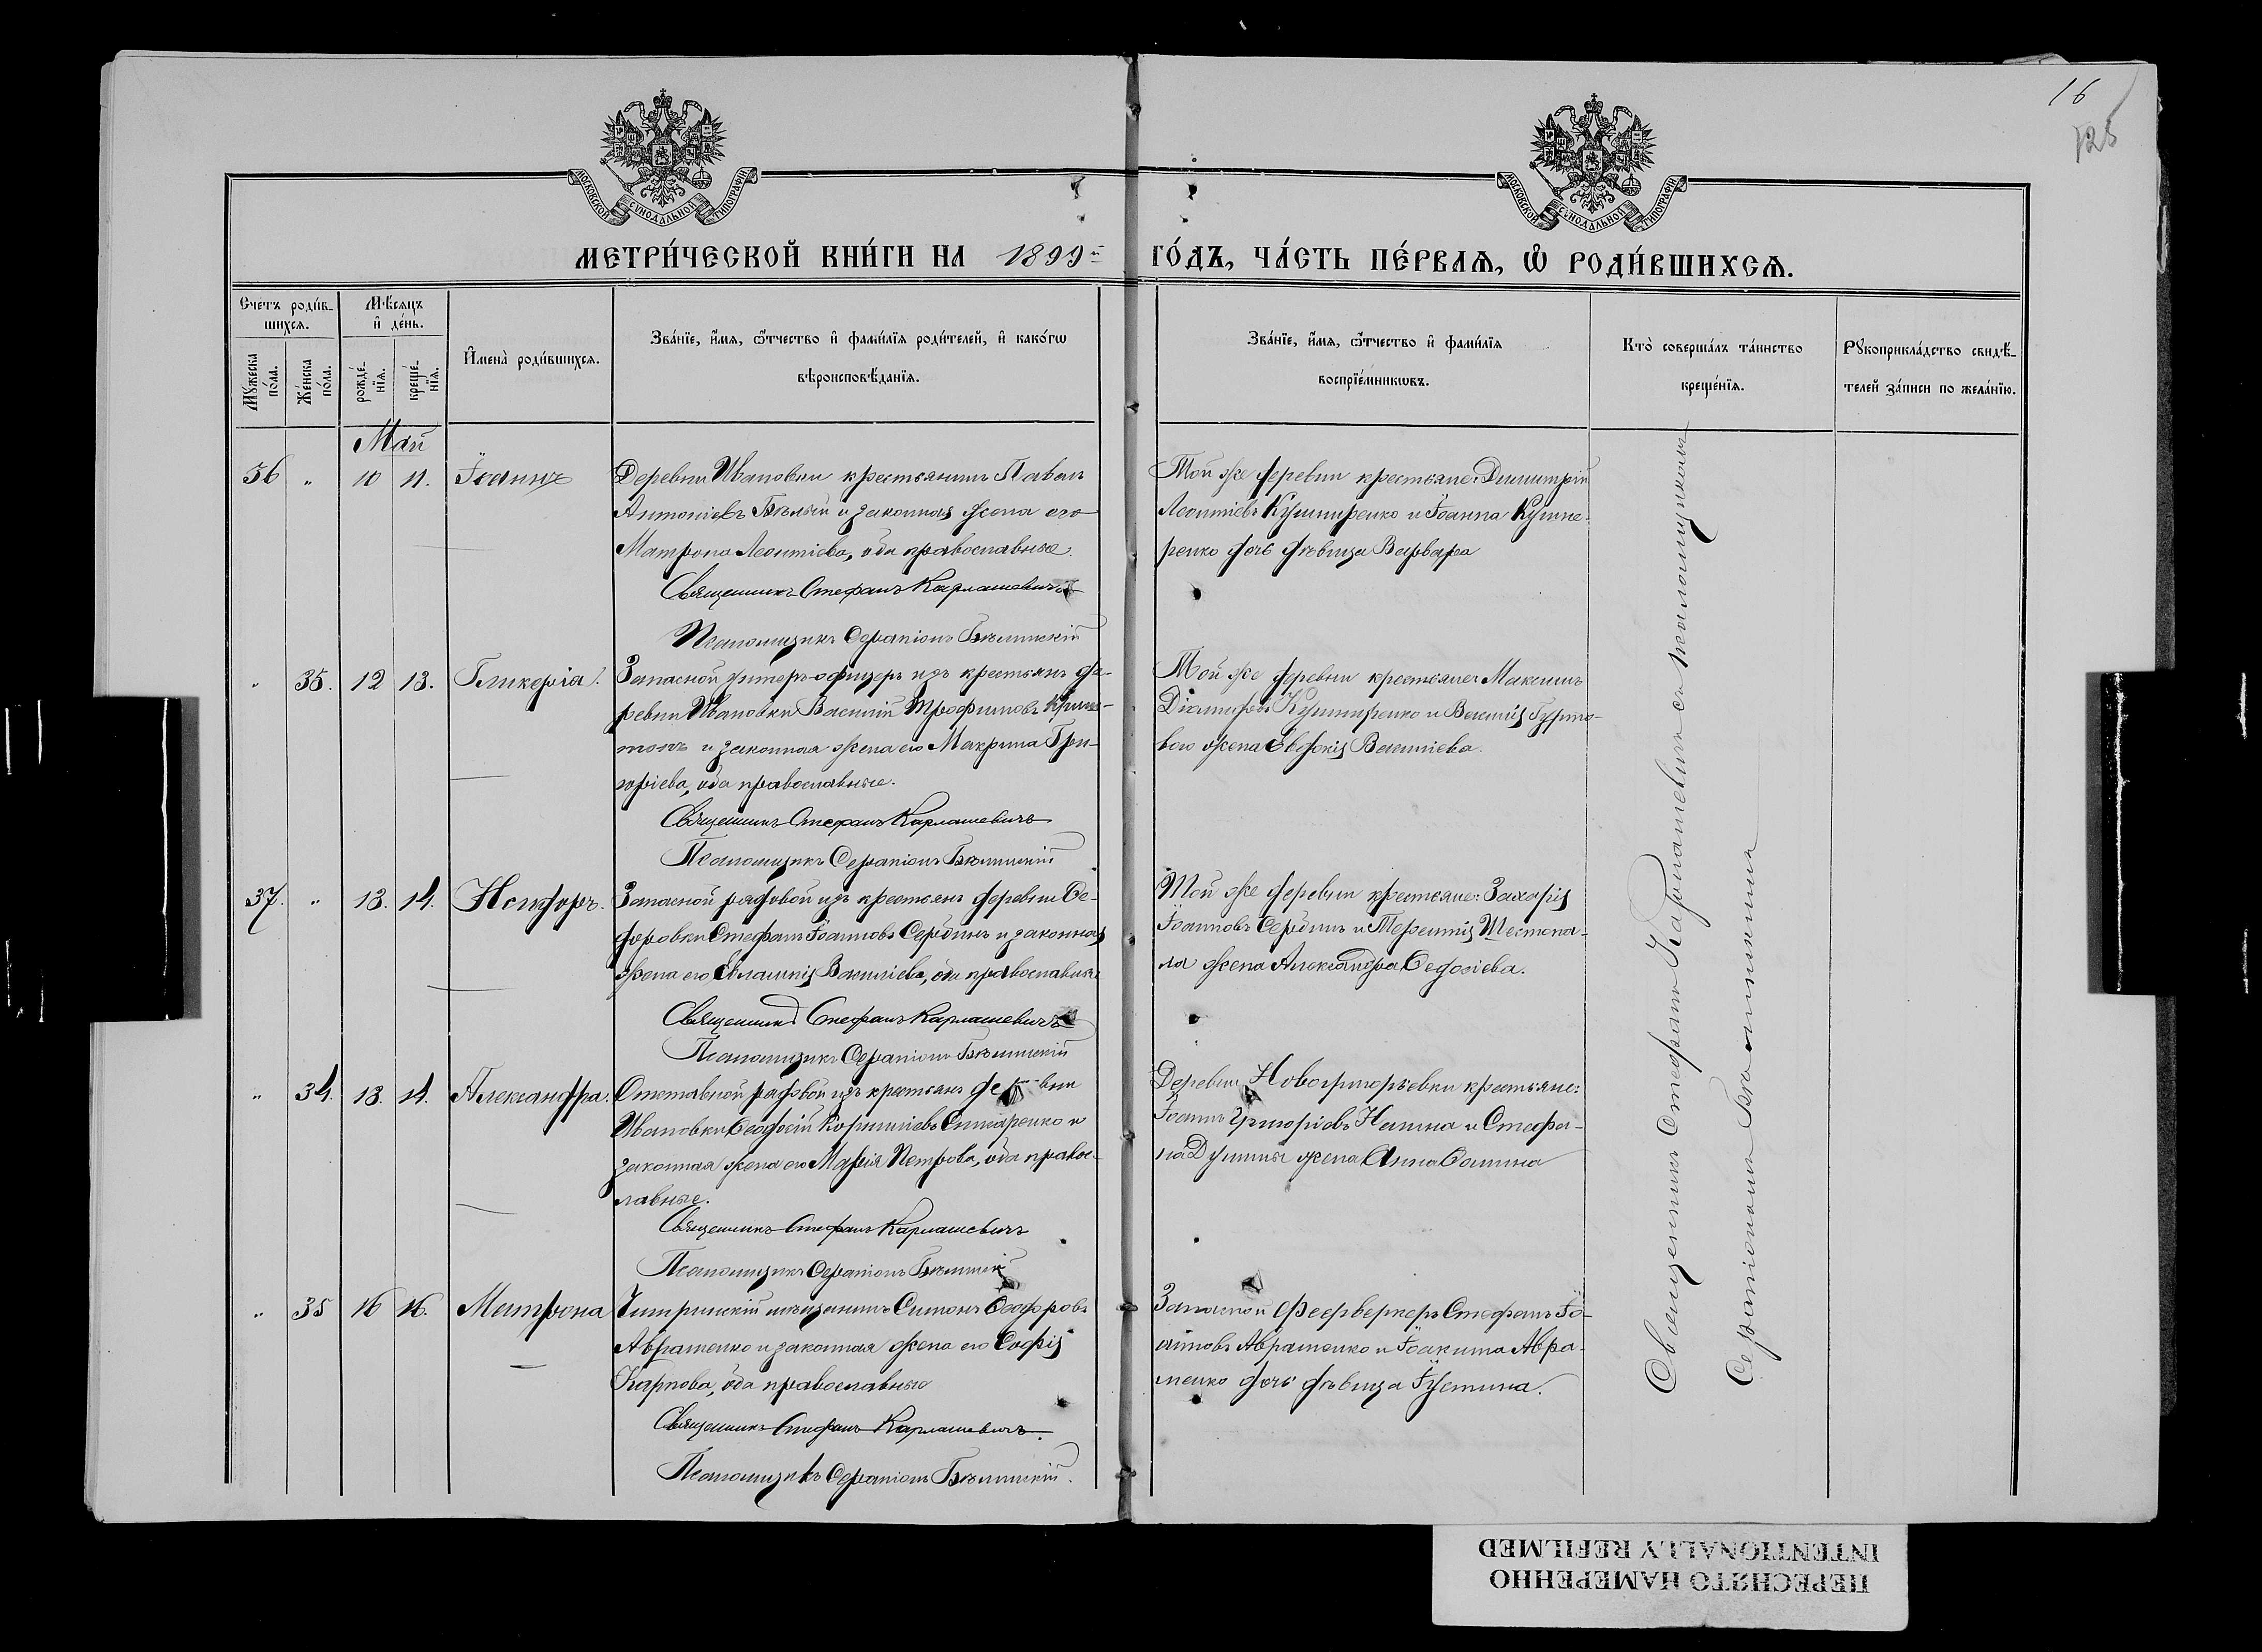 16
125
МОСКОВСКОЙ СѴНОДАЛЬНОЙ ТИПОГРАФІИ
МОСКОВСКОЙ СѴНОДАЛЬНОЙ ТИПОГРАФІИ
МЕТРИ́ЧЕСКОЙ КНИ́ГИ НА 1899й ГО́ДЪ, ЧА́СТЬ ПЕ́РВАѦ, Ѡ҆ РОДИ́ВШИХСѦ.
Сче́тъ роди́в-
шихсѧ.
Мѣ́сѧцъ
и҆ де́нь.
Мꙋ́жеска
по́ла.
Же́нска
по́ла.
рожде́-
нїѧ.
креще́-
нїѧ.
И҆мена̀ роди́вшихсѧ.
Зва́нїе, и҆́мѧ, ѻ҆́тчество и҆ фами́лїѧ роди́телей, и҆ како́гѡ
вѣроисповѣ́данїѧ.
Зва́нїе, и҆́мѧ, ѻ҆́тчество и҆ фами́лїѧ
воспрїе́мникѡвъ.
Кто̀ соверша́лъ та́инство
креще́нїѧ.
Рꙋкоприкла́дство свидѣ́-
телей за́писи по жела́нїю.
Май
36 " 10 11. Іоаннъ
Деревни Ивановки крестьянинъ Павелъ
Антоніевъ Бѣлый и законная жена его
Матрона Леонтіева, оба православные.
Священникъ Стефанъ Карпашевичъ
Псаломщикъ Серапіонъ Бѣлинскій
Той же деревни крестьяне: Димитрій
Леонтіевъ Кушниренко и Іоанна Кушне-
ренко дочь дѣвица Варвара
" 35. 12 13. Гликерія.
Запасной унтеръ-офицеръ изъ крестьянъ де-
ревни Ивановки Василій Трофимовъ
и законная жена его Макрина Гри-
горіева, оба православные.
Священникъ Стефанъ Карпашевичъ
Псаломщикъ Серапіонъ Бѣлинскій
Той же деревни крестьяне: Максимъ
Кушниренко и Василія Гурто-
вого жена Евдокія Василіева.
37. " 13. 14. Никифоръ.
Запасной рядовой изъ крестьянъ деревни Ѳе-
доровки Стефанъ Іоанновъ Середикъ и законная
жена его Евлампія Василіева, оба православные
Священникъ Стефанъ Карпашевичъ
Псаломщикъ Серапіонъ Бѣлинскій
Той же деревни крестьяне: Захарія
Іоанновъ Середикъ и Терентія Шестопа-
ла жена Александра Ѳедосіева.
" 34. 13. 14. Александра.
Отставной рядовой изъ крестьянъ деревни
Ивановки Ѳеодосій Корниліевъ Ситаренко и
законная жена его Марія Петрова, оба правос-
лавные.
Священникъ Стефанъ Карпашевичъ
Псаломщикъ Серапіонъ Бѣлинскій
Деревни Новогригорьевки крестьяне:
Іоаннъ Григоріевъ и Стефа-
на жена Анна Ѳомина
" 35 16 16. Матрона
Чигринскій мѣщанинъ Симонъ Ѳеодоровъ
Авраменко и законная жена его Софія
Карпова, оба православные
Священникъ Стефанъ Карпашевичъ.
Псаломщикъ Серапіонъ Бѣлинскій.
Запасной фейерверкеръ Стефанъ Іо-
анновъ Авраменко и Іоакима Авра-
менко дочь дѣвица Іустина.
Священникъ Стефанъ Карпашевичъ съ псаломщикомъ
Серапіономъ Бѣлинскимъ
ПЕРЕСНЯТО НАМЕРЕННО
INTENTIONALLY REFILMED